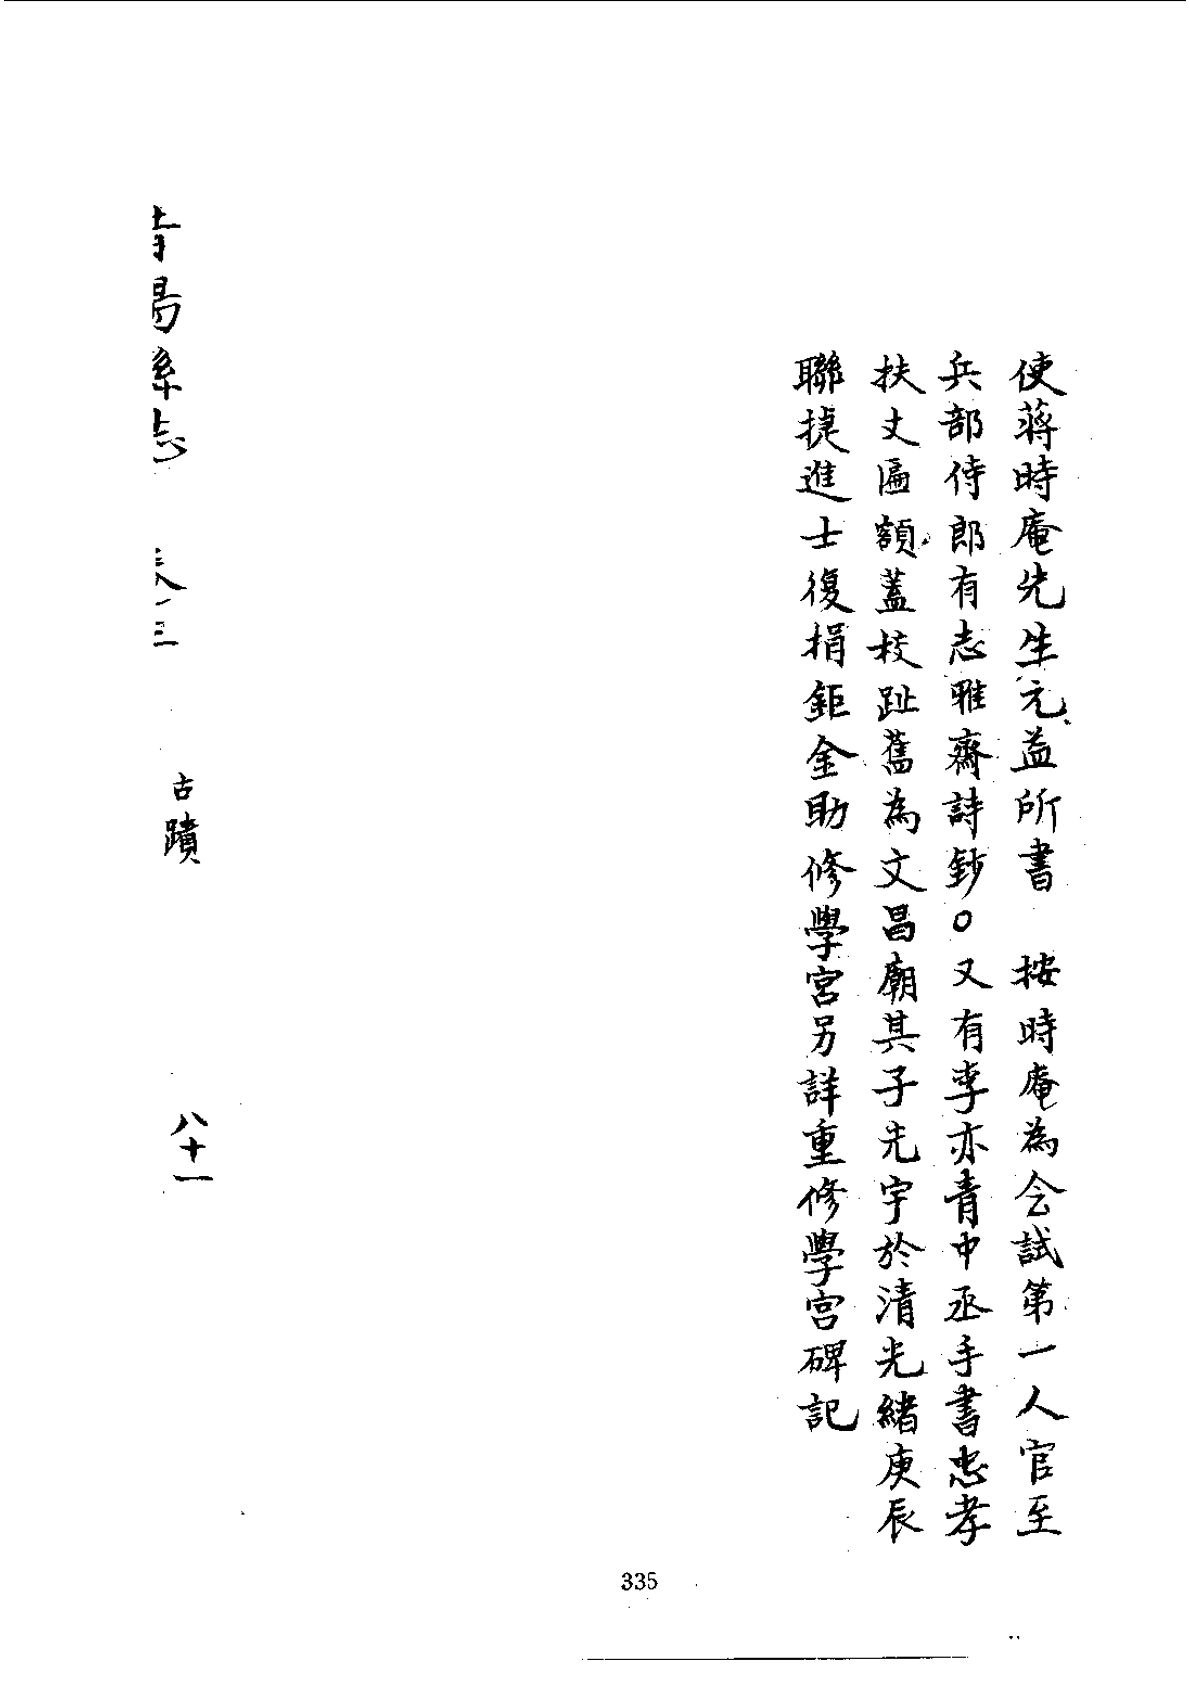 使蔣時庵先生元益所書　按時庵為会試第一人官至
兵部侍郎有志雅齋詩鈔○又有李亦青中丞手書忠孝
扶丈匾額蓋校趾舊為文昌廟其子先宇於清光緒庚辰
聯捷進士復捐鉅金助修學宮另詳重修學宮碑記
陽縣志　卷三　古蹟　八十一
335